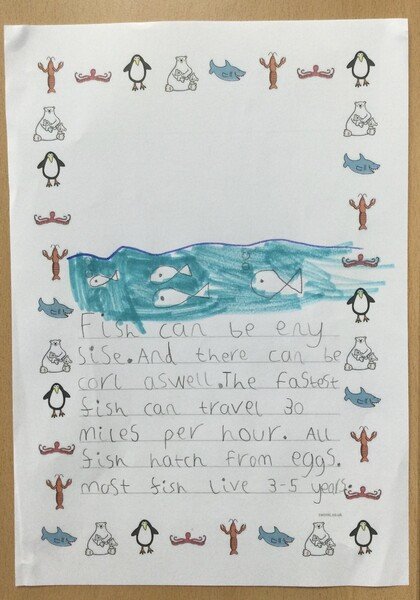 Fish can be eny
sise. And there can be
corl aswell. The fastest
fish can travel 30
miles per hour. All
fish hatch from eggs.
most fish live 3-5 years.